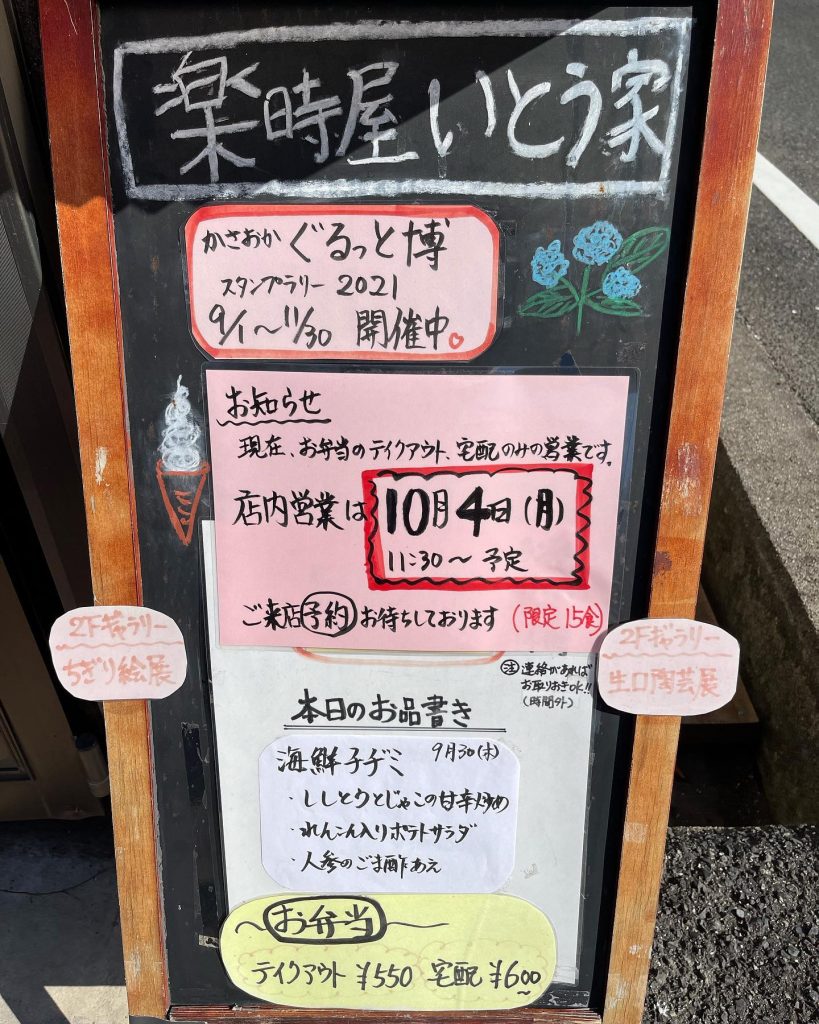 楽時屋いとう家
かさおか ぐるっと博
スタンプラリー 2021
9/1〜11/30 開催中
お知らせ
現在、お弁当のテイクアウト、宅配のみの営業です。
店内営業は 10月4日(月)
11:30〜 予定
ご来店予約お待ちしております (限定15食)
2Fギャラリー
ちぎり絵展
2Fギャラリー
生口陶芸展
注 連絡があれば
お取りおきOK!!
(時間外)
本日のお品書き
9月30(木)
海鮮チヂミ
・ししとうとじゃこの甘辛炒め
・れんこん入りポテトサラダ
・人参のごま酢あえ
〜お弁当〜
テイクアウト ¥550 宅配 ¥600〜